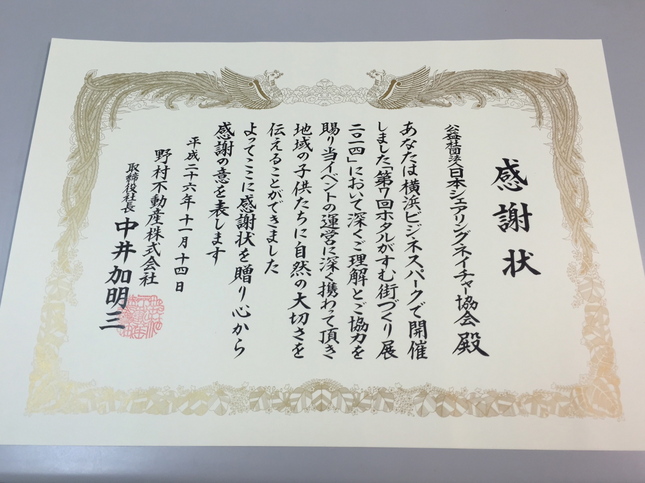 感謝状
公益社団法人日本シェアリングネイチャー協会 殿
あなたは横浜ビジネスパークで開催
しました「第7回ホタルがすむ街づくり展
二〇一四」において深くご理解とご協力を
賜り当イベントの運営に深く携わって頂き
地域の子供たちに自然の大切さを
伝えることができました
よってここに感謝状を贈り心から
感謝の意を表します
平成二十六年十一月十四日
野村不動産株式会社
取締役社長 中井加明三